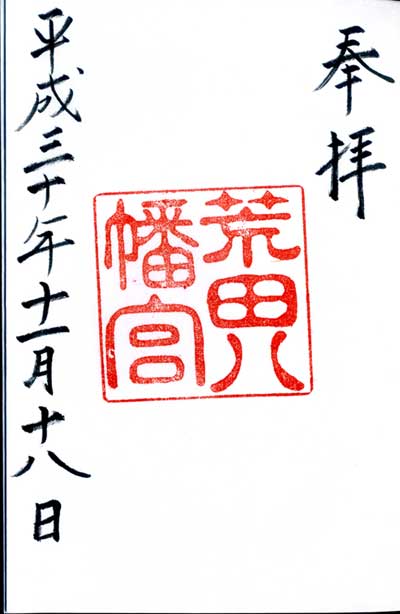 奉拝
荒田八
幡宮
平成三十年十一月十八日